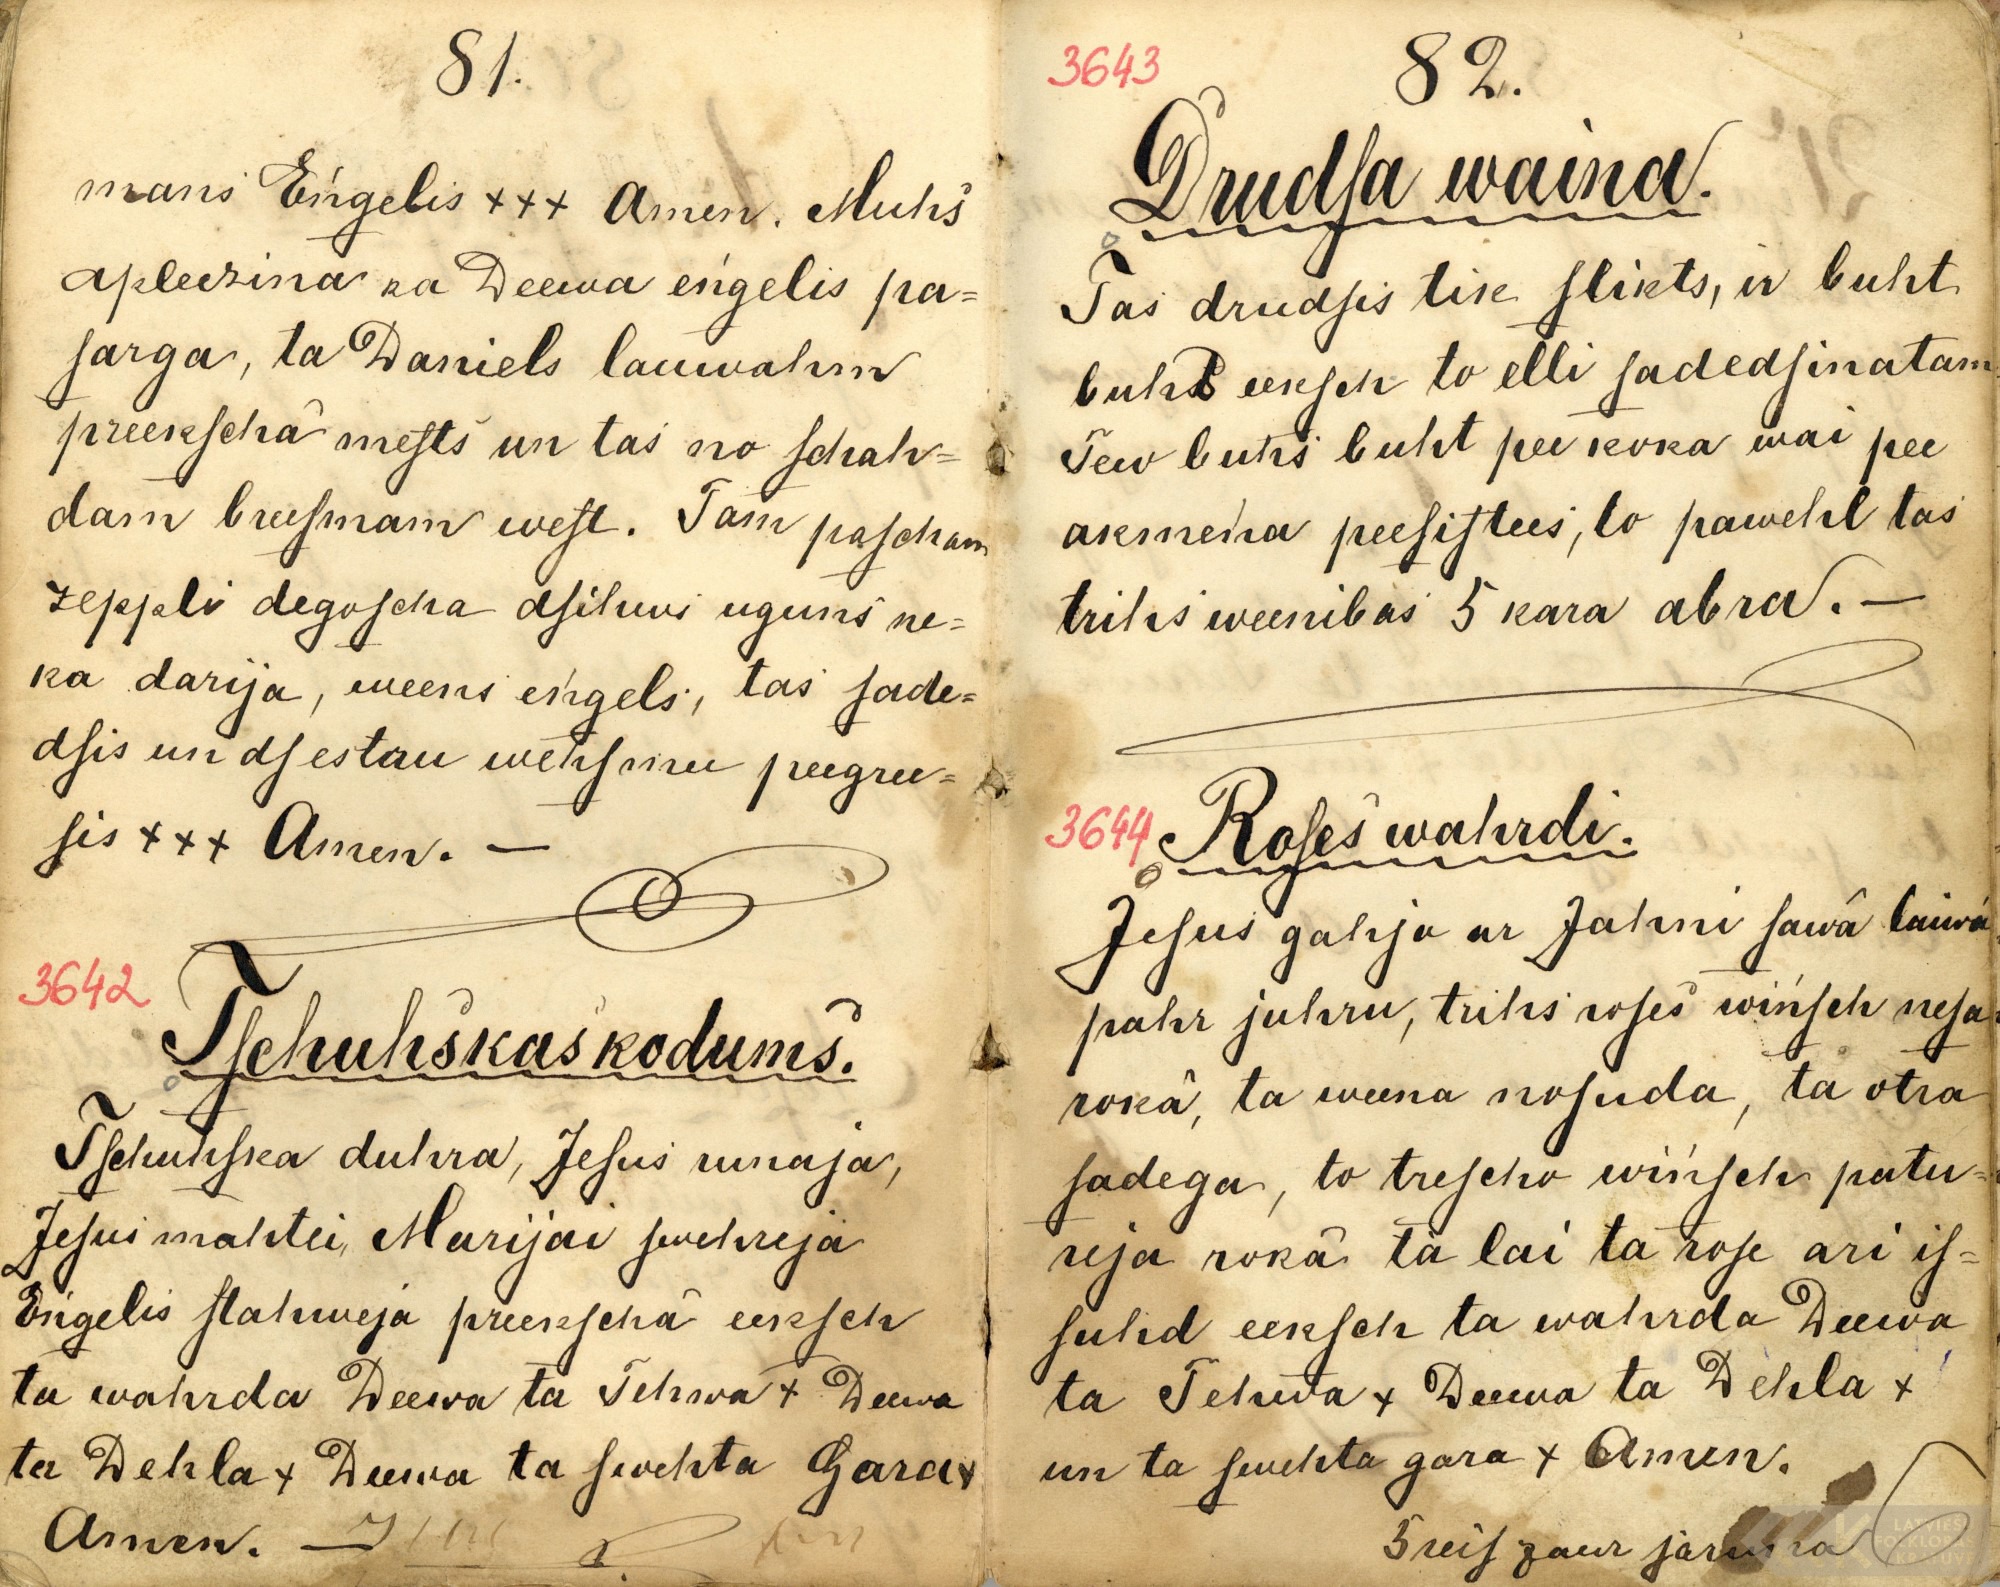 81.
mans Eńgelis +++ Amen. Muhs
apleezina ka Deewa eńgelis pa=
ſarga, ta Daniels lauwahm
preekſchâ meſts un tas no ſchah=
dam breeſmam weſt. Tam paſcham
zeppli degoſcha dſihwi uguns ne=
ka darija, weens eńgels, tas ſade=
dſis un dſestru wehſmu peegree=
ſis +++ Amen. —
3642
Tſchuhskas kodums.
Tſchuhſka duhra, Jeſus runaja,
Jeſus mahtei, Marijai ſwehreja
Eńgelis ſtahweja preekſchâ eekſch
ta wahrda Deewa ta Tehwa + Deewa
ta Dehla + Deewa ta ſwehta Gara +
Amen. —
3643
82.
Drudſa waina.
Tas drudſis tik ſlikts, ir buht
buht eekſch to elli ſadedſinatam
Tew buhs buht pee koka wai pee
akmeńa peeſiſtees, to pawehl tas
trihs weenibas 5 kara abra. —
3644
Roſes wahrdi.
Jeſus gahja ar Jahni ſawâ laiwâ
pahr juhru, trihs roſes wińſch neſa
rokâ, ta weena noſuda, ta otra
ſadega, to treſcho wińſch patu=
reja rokâ tà lai ta roſe ari iſ=
ſuhd eekſch ta wahrda Deewa
ta Tehwa + Deewa ta Dehla +
un ta ſwehta gara + Amen.
5 reiſ zaur
LATVIEŠU
FOLKLORAS
KRĀTUVE